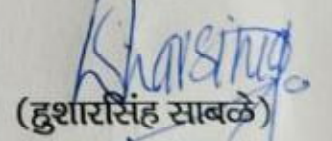 (हुशारसिंह साबळे)